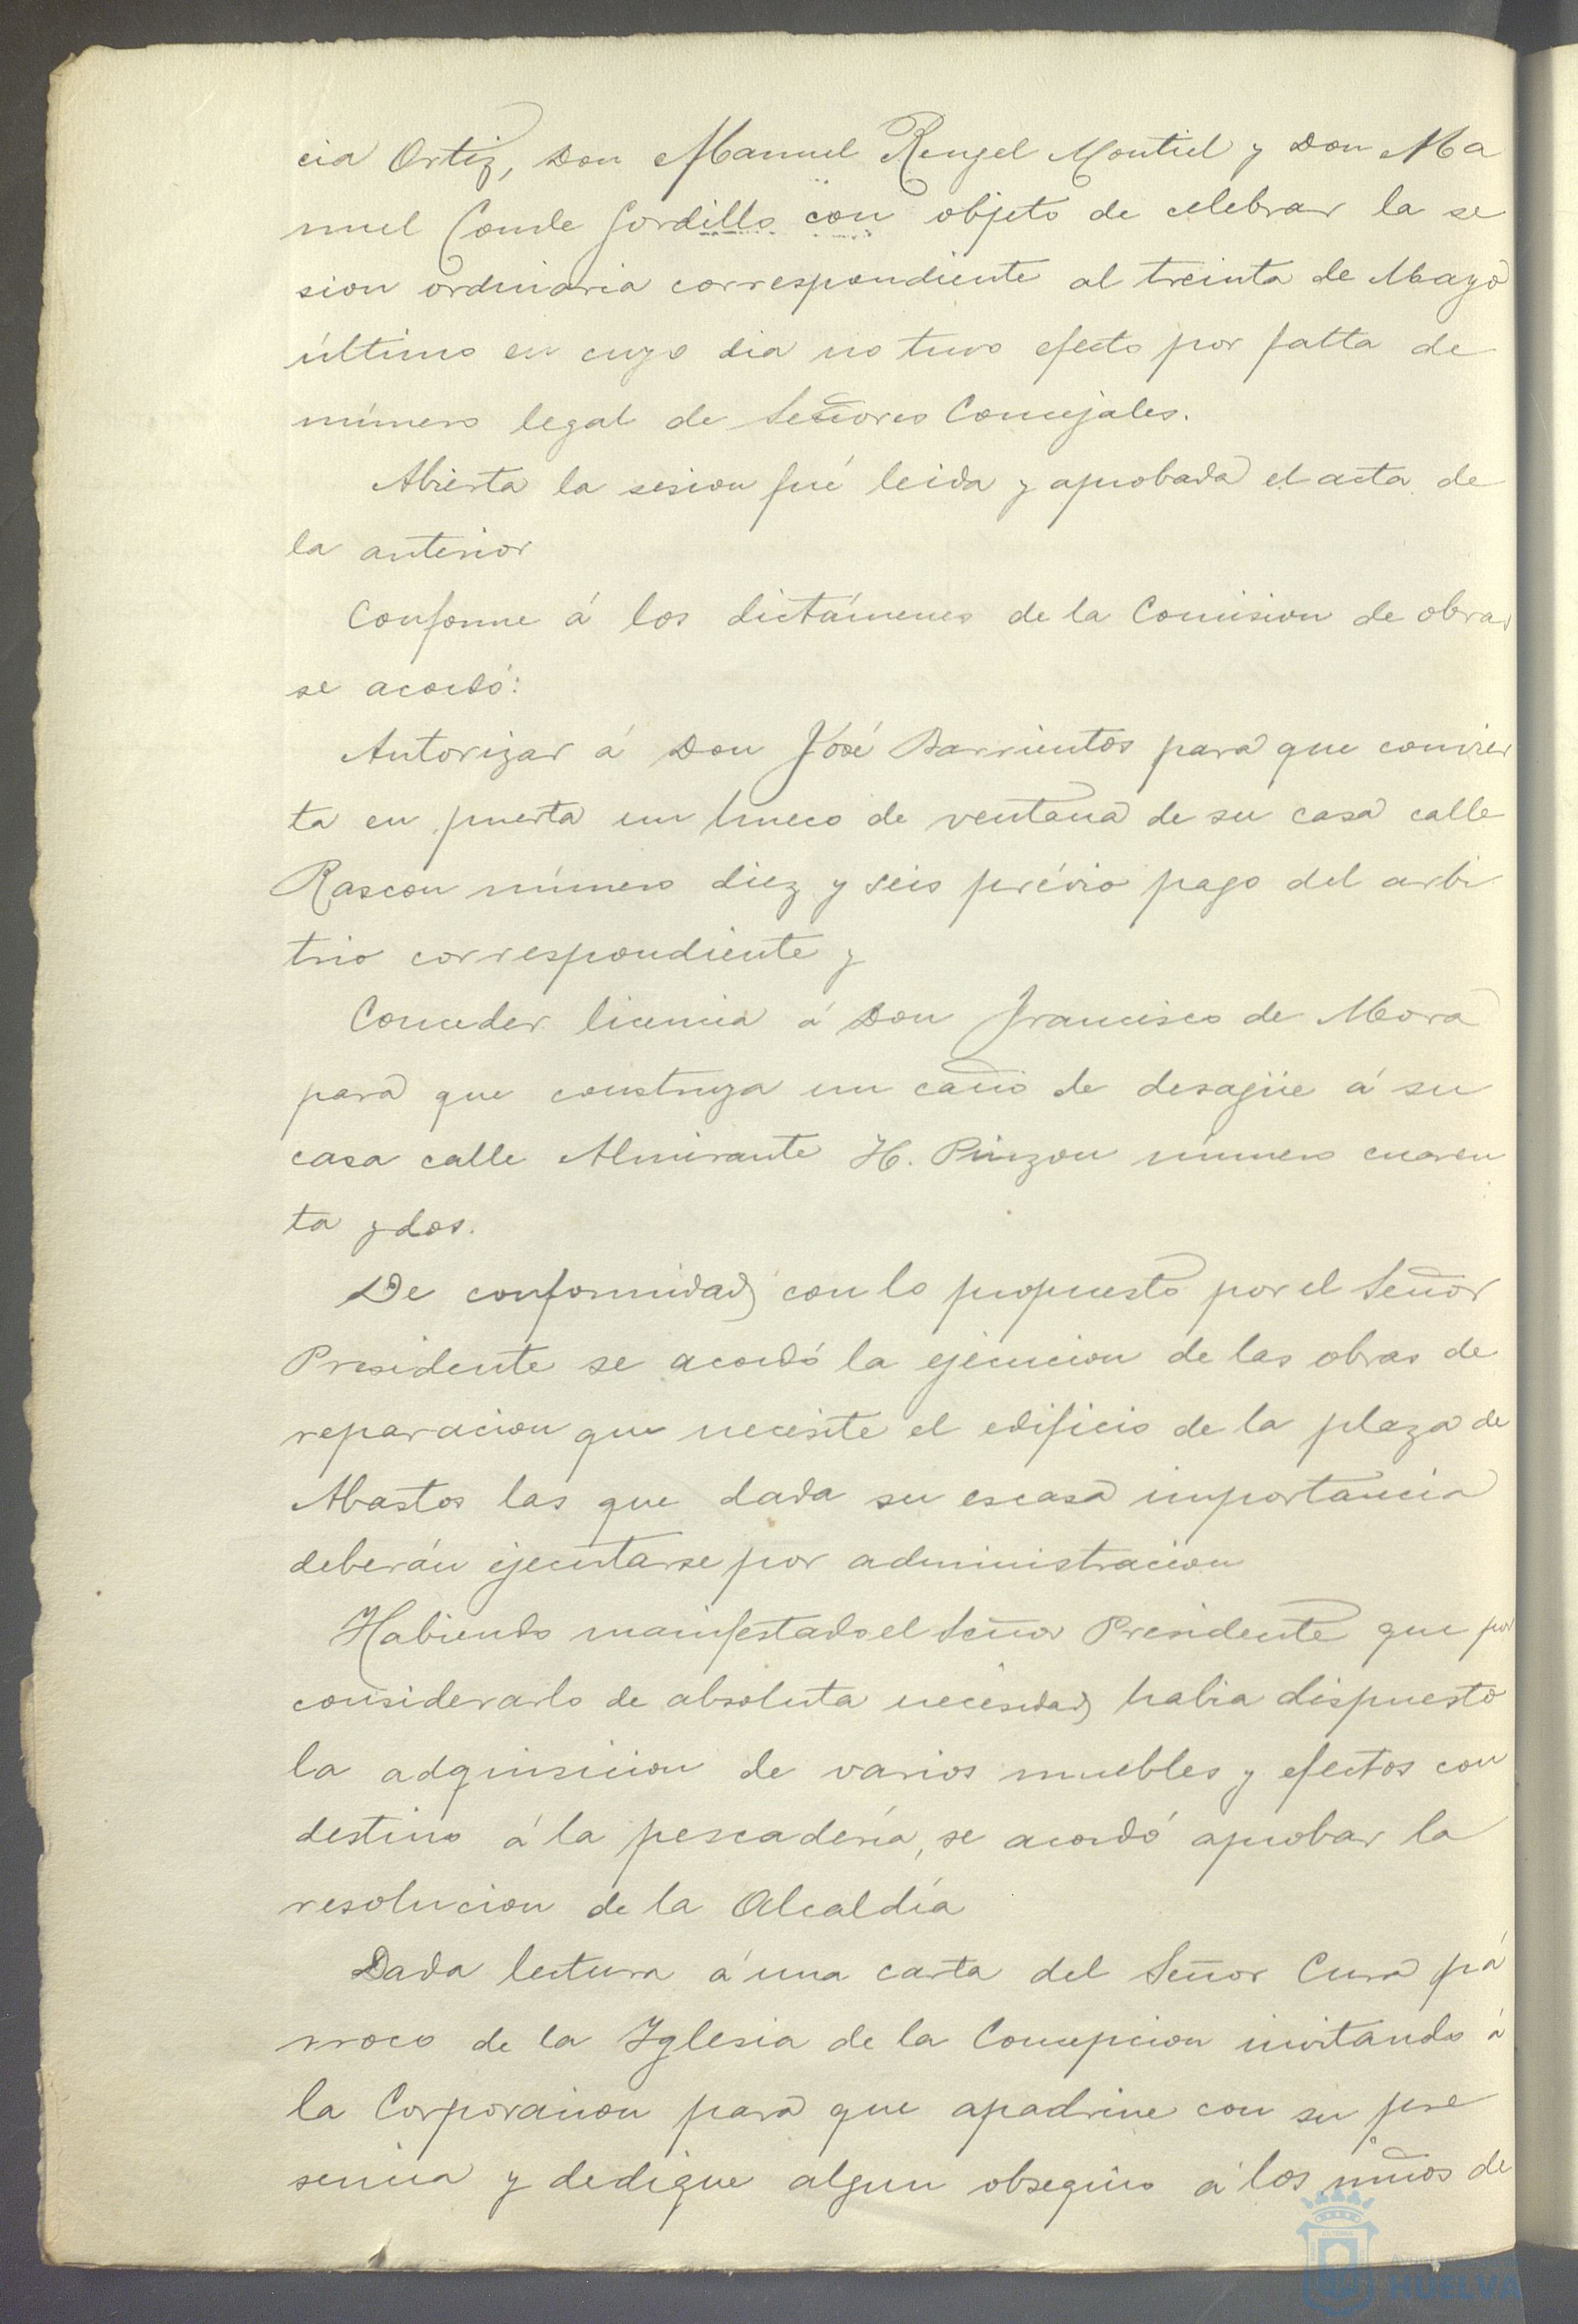 cia Ortiz, Don Manuel Rengel Montiel y Don Ma
nuel Conde Gordillo con objeto de celebrar la se
sion ordinaria correspondiente al treinta de Mayo
último en cuyo dia no tuvo efecto por falta de
número legal de Señores Concejales.
Abierta la sesion fué leida y aprobada el acta de
la anterior
Conforme á los dictámenes de la Comision de obras
se acordó:
Autorizar á Don José Barrientos para que convier
ta en puerta un hueco de ventana de su casa calle
Rascon número diez y seis prévio pago del arbi
trio correspondiente y
Conceder licencia á Don Francisco de Mora
para que construya un caño de desagüe á su
casa calle Almirante H. Pinzon número cuaren
ta y dos.
De conformidad con lo propuesto por el Señor
Presidente se acordó la ejecucion de las obras de
reparacion que necesite el edificio de la plaza de
Abastos las que dada su escasa importancia
deberán ejecutarse por administracion
Habiendo manifestado el Señor Presidente que por
considerarlo de absoluta necesidad habia dispuesto
la adquisicion de varios muebles y efectos con
destino á la pescadería, se acordó aprobar la
resolucion de la Alcaldía
Dada lectura á una carta del Señor Cura pá
rroco de la Iglesia de la Concepcion invitando á
la Corporacion para que apadrine con su pre
sencia y dedique algun obsequio á los niños de
HUELVA